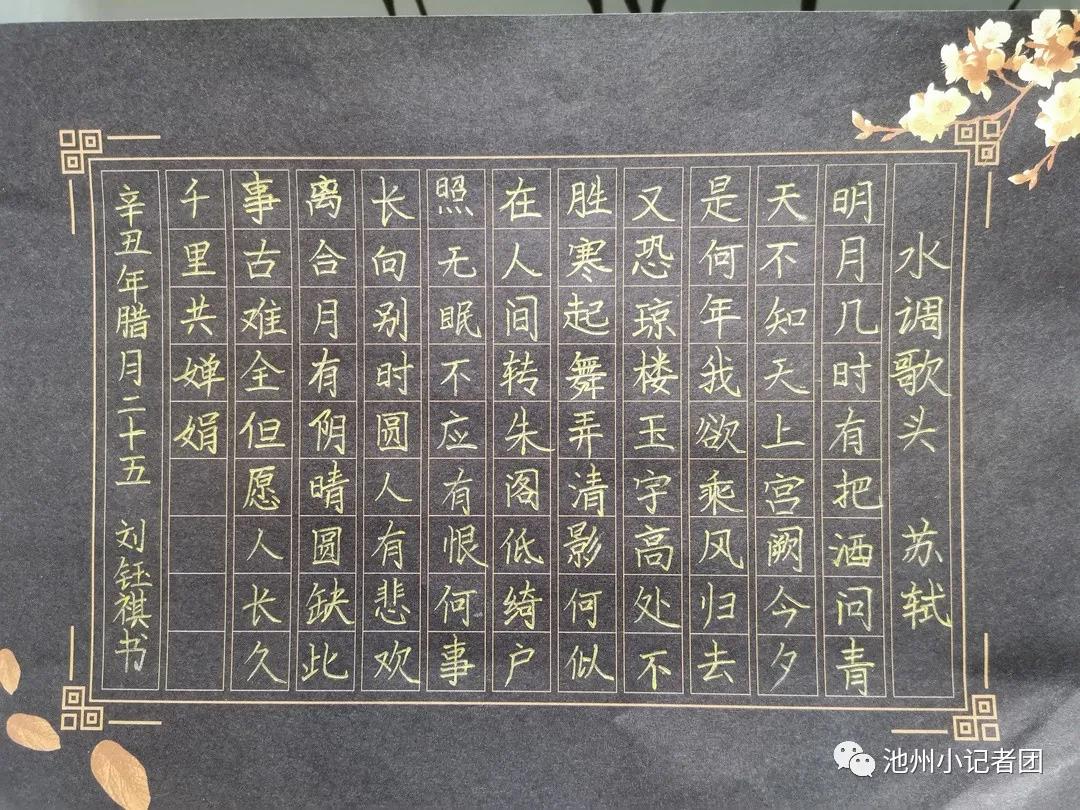 水调歌头 苏轼
明月几时有把洒问青
天不知天上宫阙今夕
是何年我欲乘风归去
又恐琼楼玉宇高处不
胜寒起舞弄清影何似
在人间转朱阁低绮户
照无眠不应有恨何事
长向别时圆人有悲欢
离合月有阴晴圆缺此
事古难全但愿人长久
千里共婵娟
辛丑年腊月二十五 刘钰祺书
池州小记者团